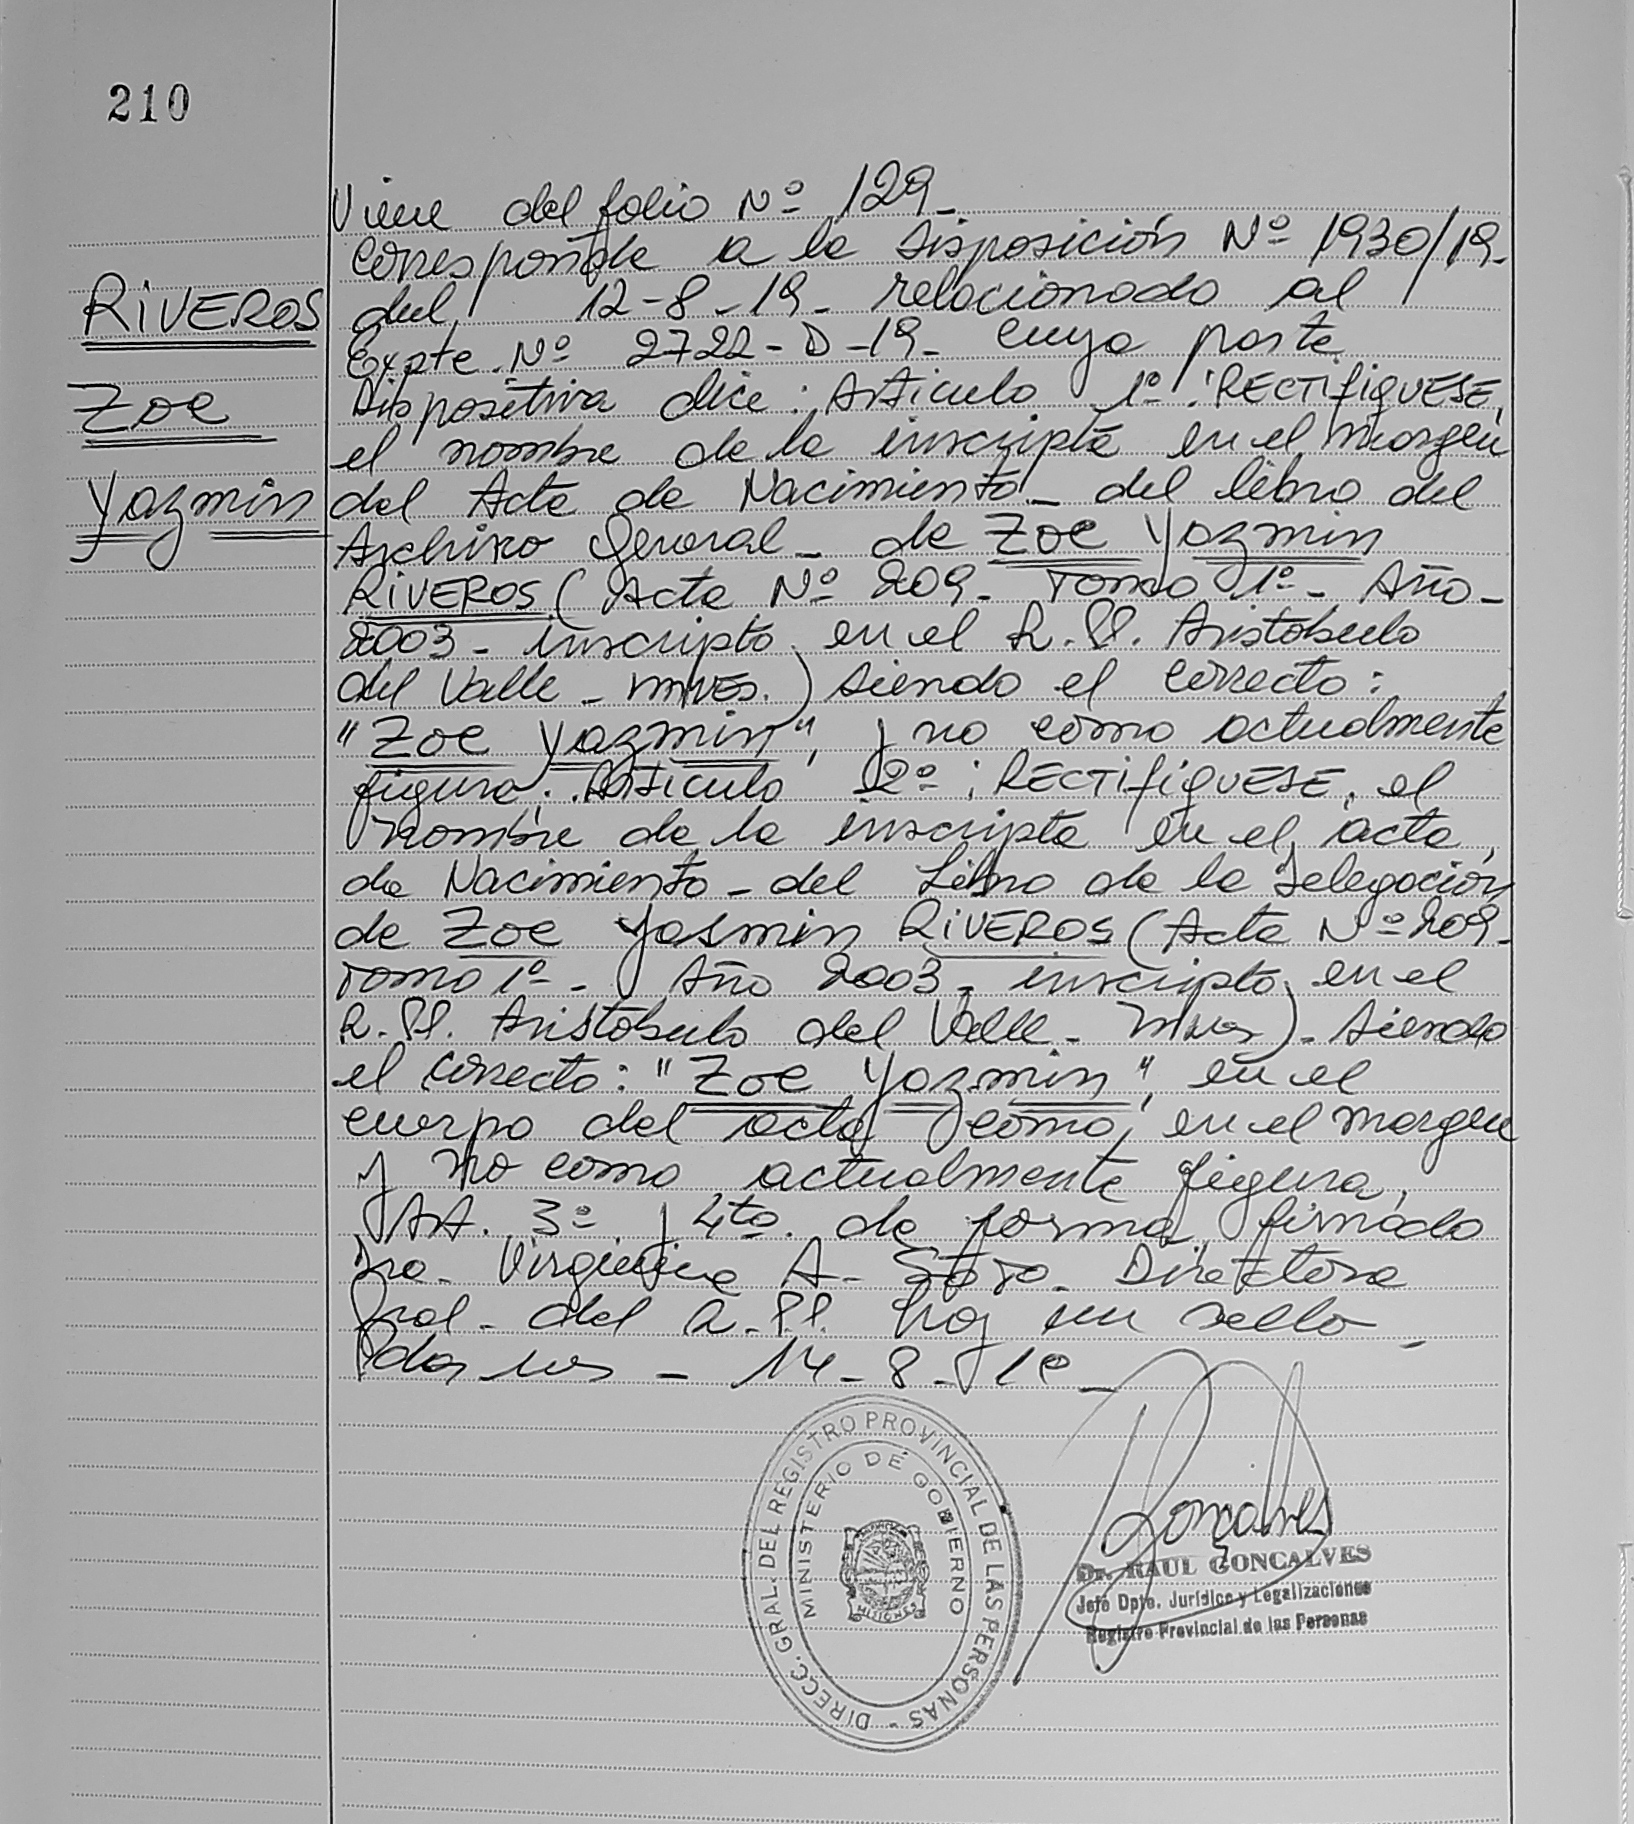 210
RIVEROS
Zoe
Yazmin
Viene del folio Nº 129-
corresponde a la Disposición Nº 1930/19-
del 12-8-19- relacionado al
Expte. Nº 2722-D-19- cuya parte
Dispositiva dice: Articulo 1º: RECTIFIQUESE,
el nombre de la inscripta en el margen
del Acta de Nacimiento- del libro del
Archivo General- de Zoe Yazmin
RIVEROS (Acta Nº 209- Tomo 1º- Año-
2003- inscripto en el R.PP. Aristobulo
del Valle- Mnes.) siendo el correcto:
"Zoe Yazmin", y no como actualmente
figura. Articulo 2º: RECTIFIQUESE, el
nombre de la inscripta en el acta
de Nacimiento- del Libro de la Delegación
de Zoe Yasmin RIVEROS (Acta Nº 209-
Tomo 1º- Año 2003- inscripto en el
R.PP. Aristobulo del Valle- Mnes)- siendo
el correcto: "Zoe Yazmin", en el
cuerpo del acta como en el margen
y no como actualmente figura,
AA. 3º y 4to. de forma, firmado
Dra. Virginia A. Directora
Gral- del R.PP. hay un sello-
Pdas Mes - 14-8-19-
DIRECC. GRAL. DEL REGISTRO PROVINCIAL DE LAS PERSONAS -
MINISTERIO DE GOBIERNO
MISIONES
Goncalves
Dr. RAUL GONCALVES
Jefe Dpto. Jurídico y Legalizaciones
Registro Provincial de las Personas